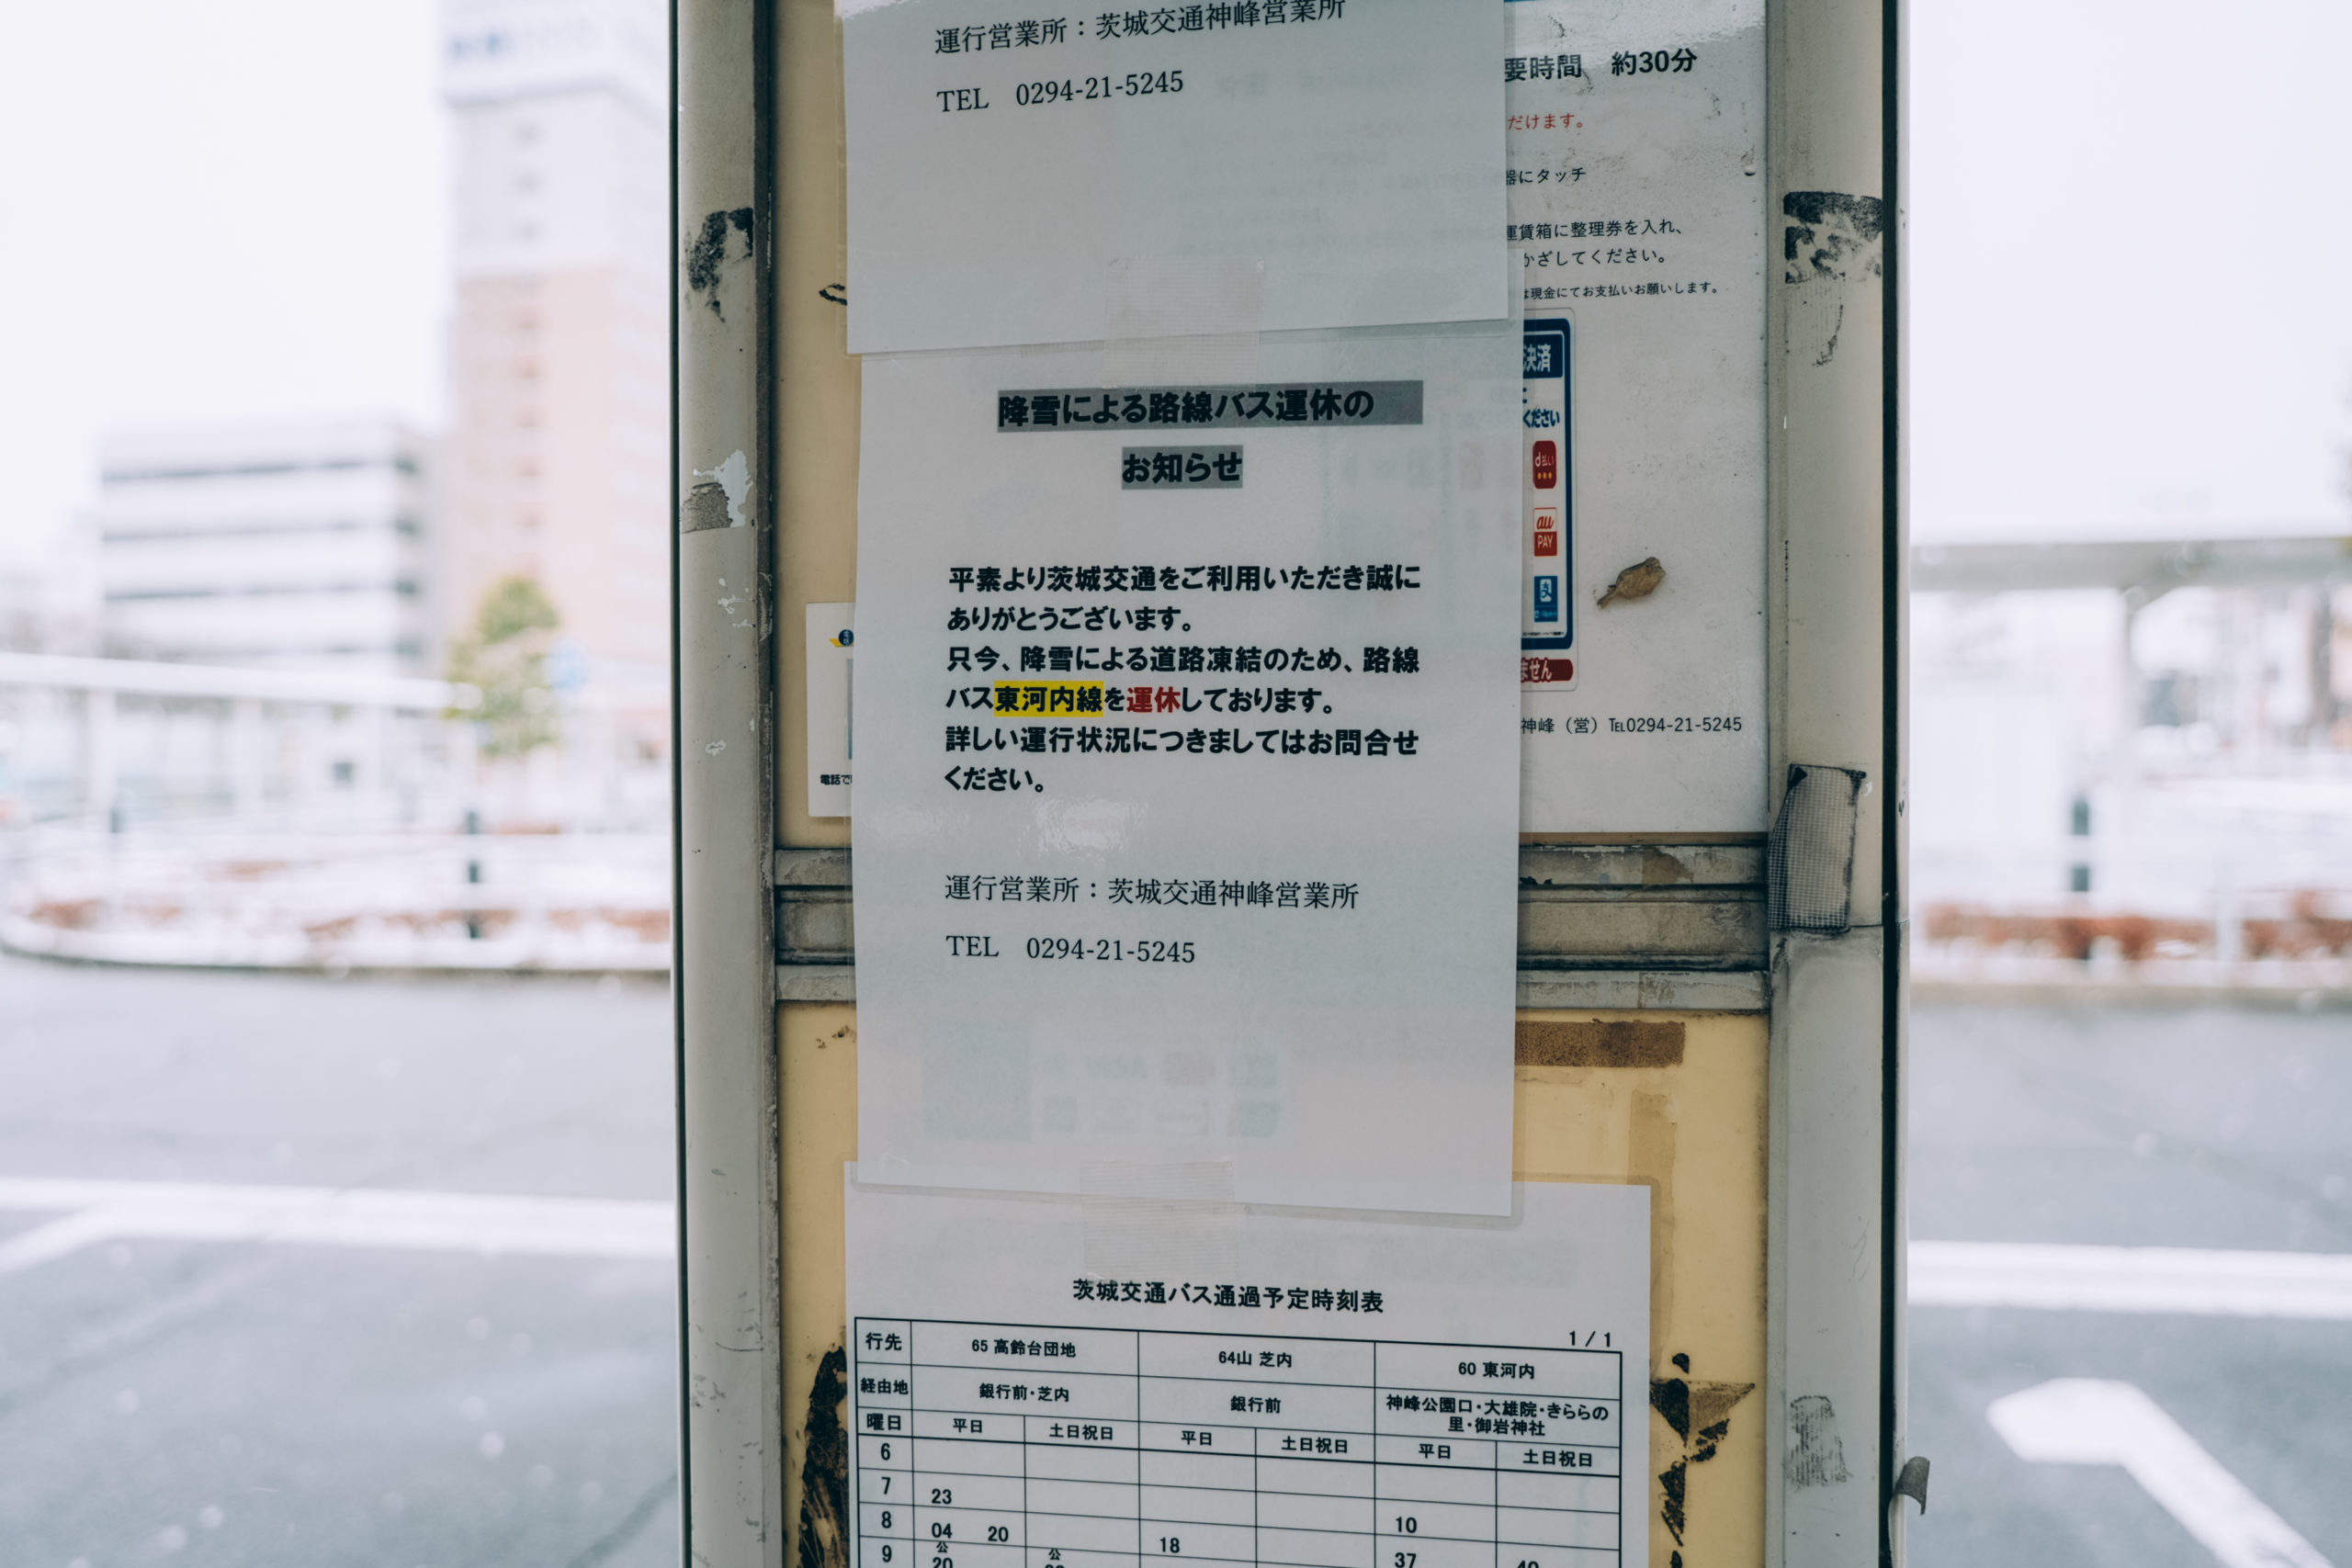 運行営業所：茨城交通神峰営業所
TEL　0294-21-5245
要時間　約30分
だけます。
器にタッチ
運賃箱に整理券を入れ、
かざしてください。
は現金にてお支払いお願いします。
決済
ください
d払い
au
PAY
ません
神峰（営）℡0294-21-5245
電話で
降雪による路線バス運休の
お知らせ
平素より茨城交通をご利用いただき誠に
ありがとうございます。
只今、降雪による道路凍結のため、路線
バス東河内線を運休しております。
詳しい運行状況につきましてはお問合せ
ください。
運行営業所：茨城交通神峰営業所
TEL　0294-21-5245
茨城交通バス通過予定時刻表
1 / 1
行先 65 高鈴台団地 64山 芝内 60 東河内
経由地 銀行前・芝内 銀行前 神峰公園口・大雄院・きららの
里・御岩神社
曜日 平日 土日祝日 平日 土日祝日 平日 土日祝日
6
7 23
8 04 20 10
公 公
9 20 18 37